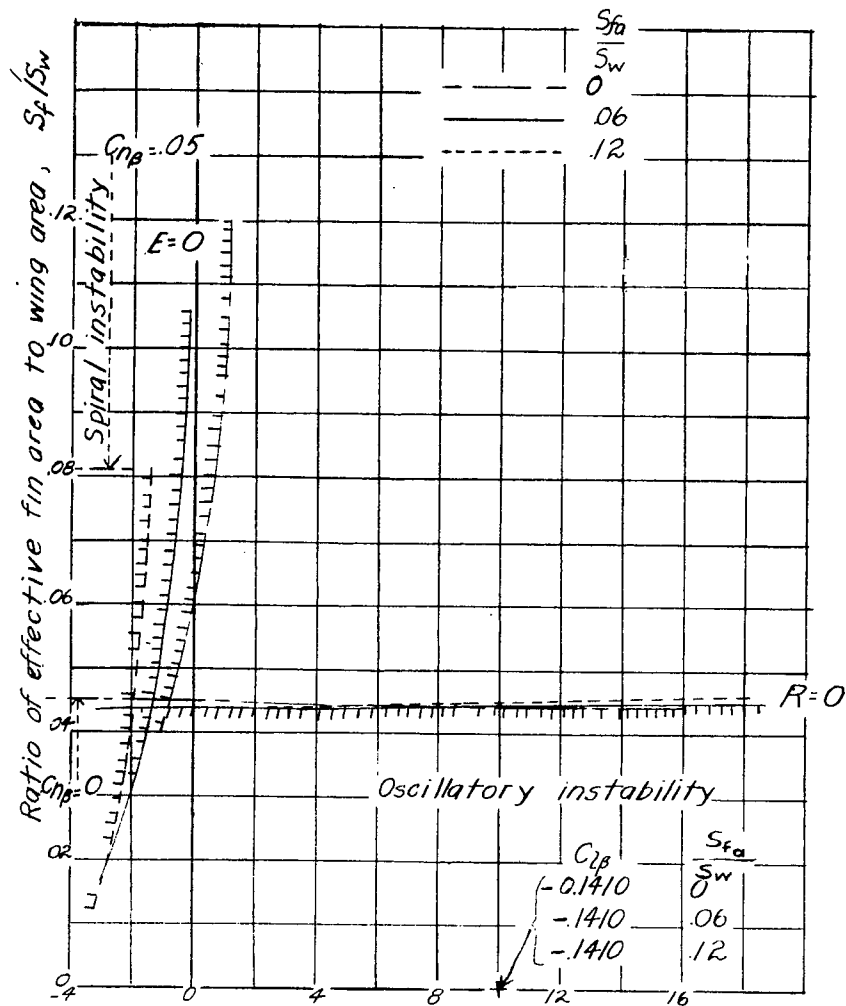 S_fa
S_w
0
.06
.12
Ratio of effective fin area to wing area, S_f/S_w
C_nβ=.05
Spiral instability
E=0
.12
.10
.08
.06
.04
.02
0
R=0
C_nβ=0
Oscillatory instability
C_lβ S_fa
S_w
-0.1410 0
-.1410 .06
-.1410 .12
-4 0 4 8 12 16